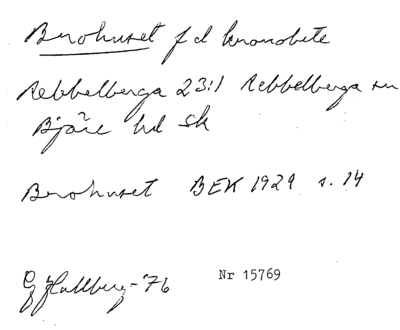 Berohuset f d kronobete
Rebbelberga 23:1 Rebbelberga sn
Bjäre hd Sk
Berohuset BEK 1929 s. 14
G Hallberg -76 Nr 15769